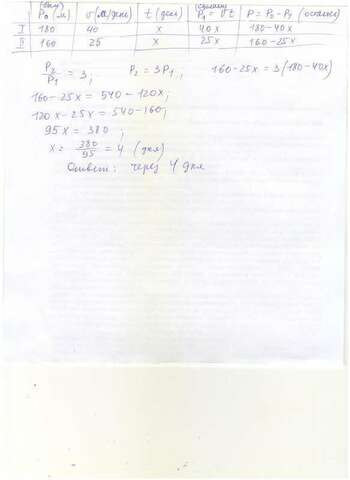 (было) (сделали)
P₀ (м) v (м/день) t (дня) P₁ = vt P = P₀ - P₁ (осталось)
I 180 40 x 40x 180-40x
II 160 25 x 25x 160-25x
P₂/P₁ = 3; P₂ = 3P₁; 160-25x = 3(180-40x)
160-25x = 540 - 120x;
120x - 25x = 540-160;
95x = 380;
x = 380/95 = 4 (дня)
Ответ: через 4 дня